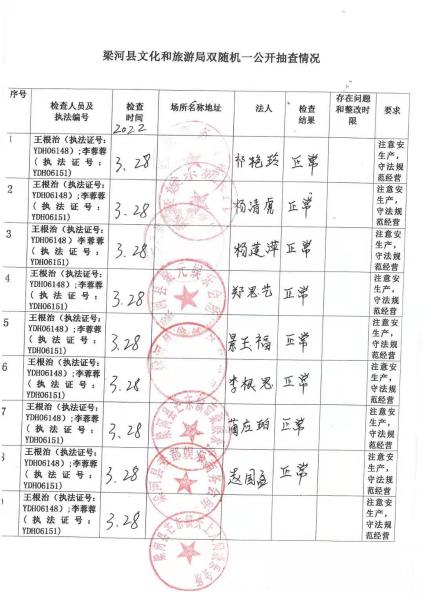 梁河县文化和旅游局双随机一公开抽查情况
序号
检查人员及
执法编号
检查
时间
2022
场所名称地址
法人
检查
结果
存在问题
和整改时
限
要求
1
王根治（执法证号：
YDH06148）;李蓉蓉
（执法证号：
YDH06151）
3.28
正常
注意安
生产，
守法规
范经营
2
王根治（执法证号：
YDH06148）;李蓉蓉
（执法证号：
YDH06151）
3.28
杨清虎
正常
注意安
生产，
守法规
范经营
3
王根治（执法证号：
YDH06148）;李蓉蓉
（执法证号：
YDH06151）
3.28
杨莲萍
正常
注意安
生产，
守法规
范经营
4
王根治（执法证号：
YDH06148）;李蓉蓉
（执法证号：
YDH06151）
3.28
郑思艺
正常
注意安
生产，
守法规
范经营
5
王根治（执法证号：
YDH06148）;李蓉蓉
（执法证号：
YDH06151）
3.28
景玉福
正常
注意安
生产，
守法规
范经营
6
王根治（执法证号：
YDH06148）;李蓉蓉
（执法证号：
YDH06151）
3.28
李根思
正常
注意安
生产，
守法规
范经营
7
王根治（执法证号：
YDH06148）;李蓉蓉
（执法证号：
YDH06151）
3.28
正常
注意安
生产，
守法规
范经营
王根治（执法证号：
YDH06148）;李蓉蓉
（执法证号：
YDH06151）
3.28
正常
注意安
生产，
守法规
范经营
王根治（执法证号：
YDH06148）;李蓉蓉
（执法证号：
YDH06151）
3.28
注意安
生产，
守法规
范经营